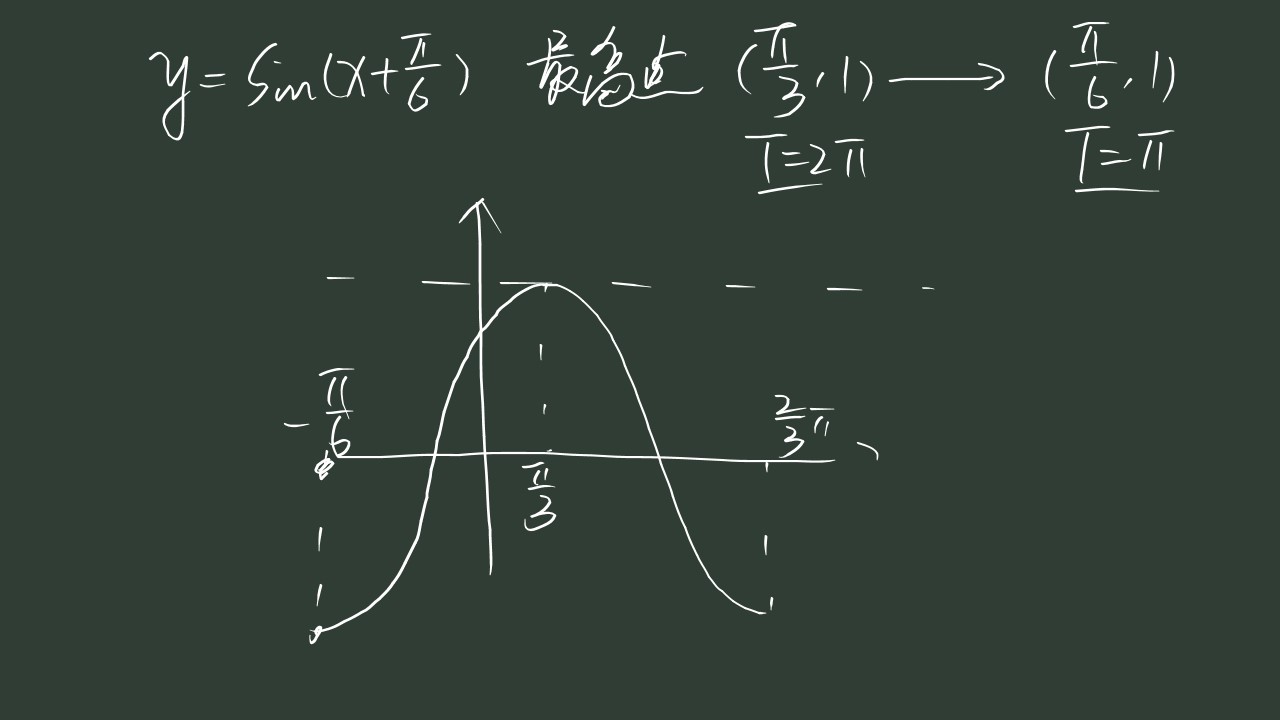 y = sin(x + π/6) 最高点 (π/3, 1) ⟶ (π/6, 1)
T = 2π T = π
-π/6 2/3 π
π/3